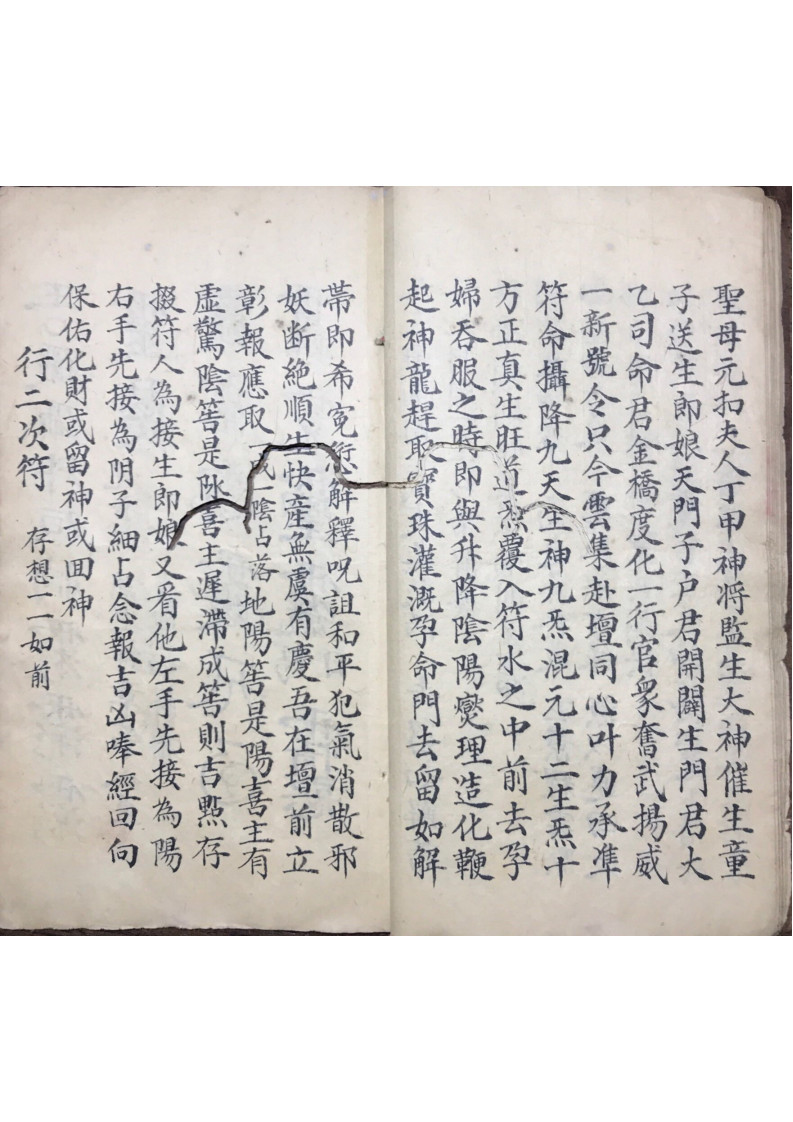 聖母元扣夫人丁甲神将監生大神催生童
子送生郎娘天門子户君開闢生門君大
乙司命君金橋度化一行官衆奮武揚威
一新號令只今雲集赴壇同心叶力承凖
符命攝降九天生神九炁混元十二生炁十
方正真生旺道炁覆入符水之中前去孕
婦吞服之時即與升降陰陽燮理造化鞭
起神龍趕取寳珠灌溉孕命門去留如解
帶即希寃愆解釋呪詛和平犯氣消散邪
妖断絶順生快産無虞有慶吾在壇前立
彰報應取陰占落地陽筶是陽喜主有
虚驚陰筶是阴喜主遲滯成筶則吉點存
掇符人為接生郎娘又看他左手先接為陽
右手先接為阴子細占念報吉凶唪經回向
保佑化財或留神或囬神
行二次符 存想一一如前